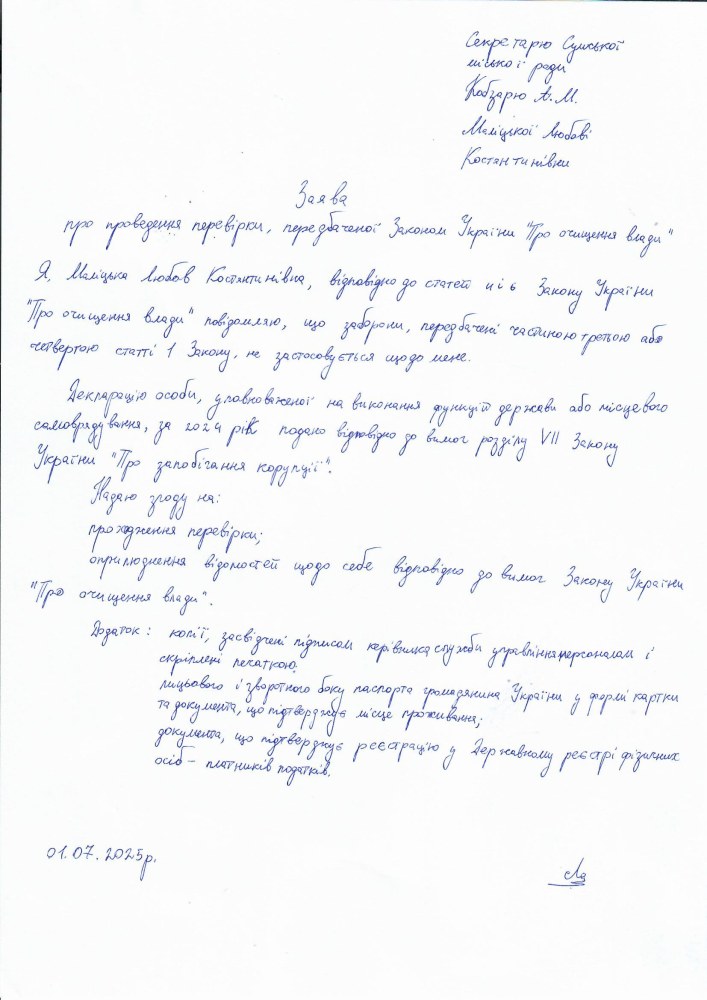 Секретарю Сумської
міської ради
Кобзарю А.М.
Маліцької Любові
Костянтинівни
Заява
про проведення перевірки, передбаченої Законом України "Про очищення влади"
Я, Маліцька Любов Костянтинівна, відповідно до статей 4 і 6 Закону України
"Про очищення влади" повідомляю, що заборони, передбачені частиною третьою або
четвертою статті 1 Закону, не застосовується щодо мене.
Декларацію особи, уповноваженої на виконання функцій держави або місцевого
самоврядування, за 2024 рік подано відповідно до вимог розділу VII Закону
України "Про запобігання корупції".
Надаю згоду на:
проходження перевірки;
оприлюднення відомостей щодо себе відповідно до вимог Закону України
"Про очищення влади".
Додаток: копії, засвідчені підписом керівника служби управління персоналом і
скріплені печаткою:
лицьового і зворотного боку паспорта громадянина України у формі картки
та документа, що підтверджує місце проживання;
документа, що підтверджує реєстрацію у Державному реєстрі фізичних
осіб – платників податків.
01.07.2025р.